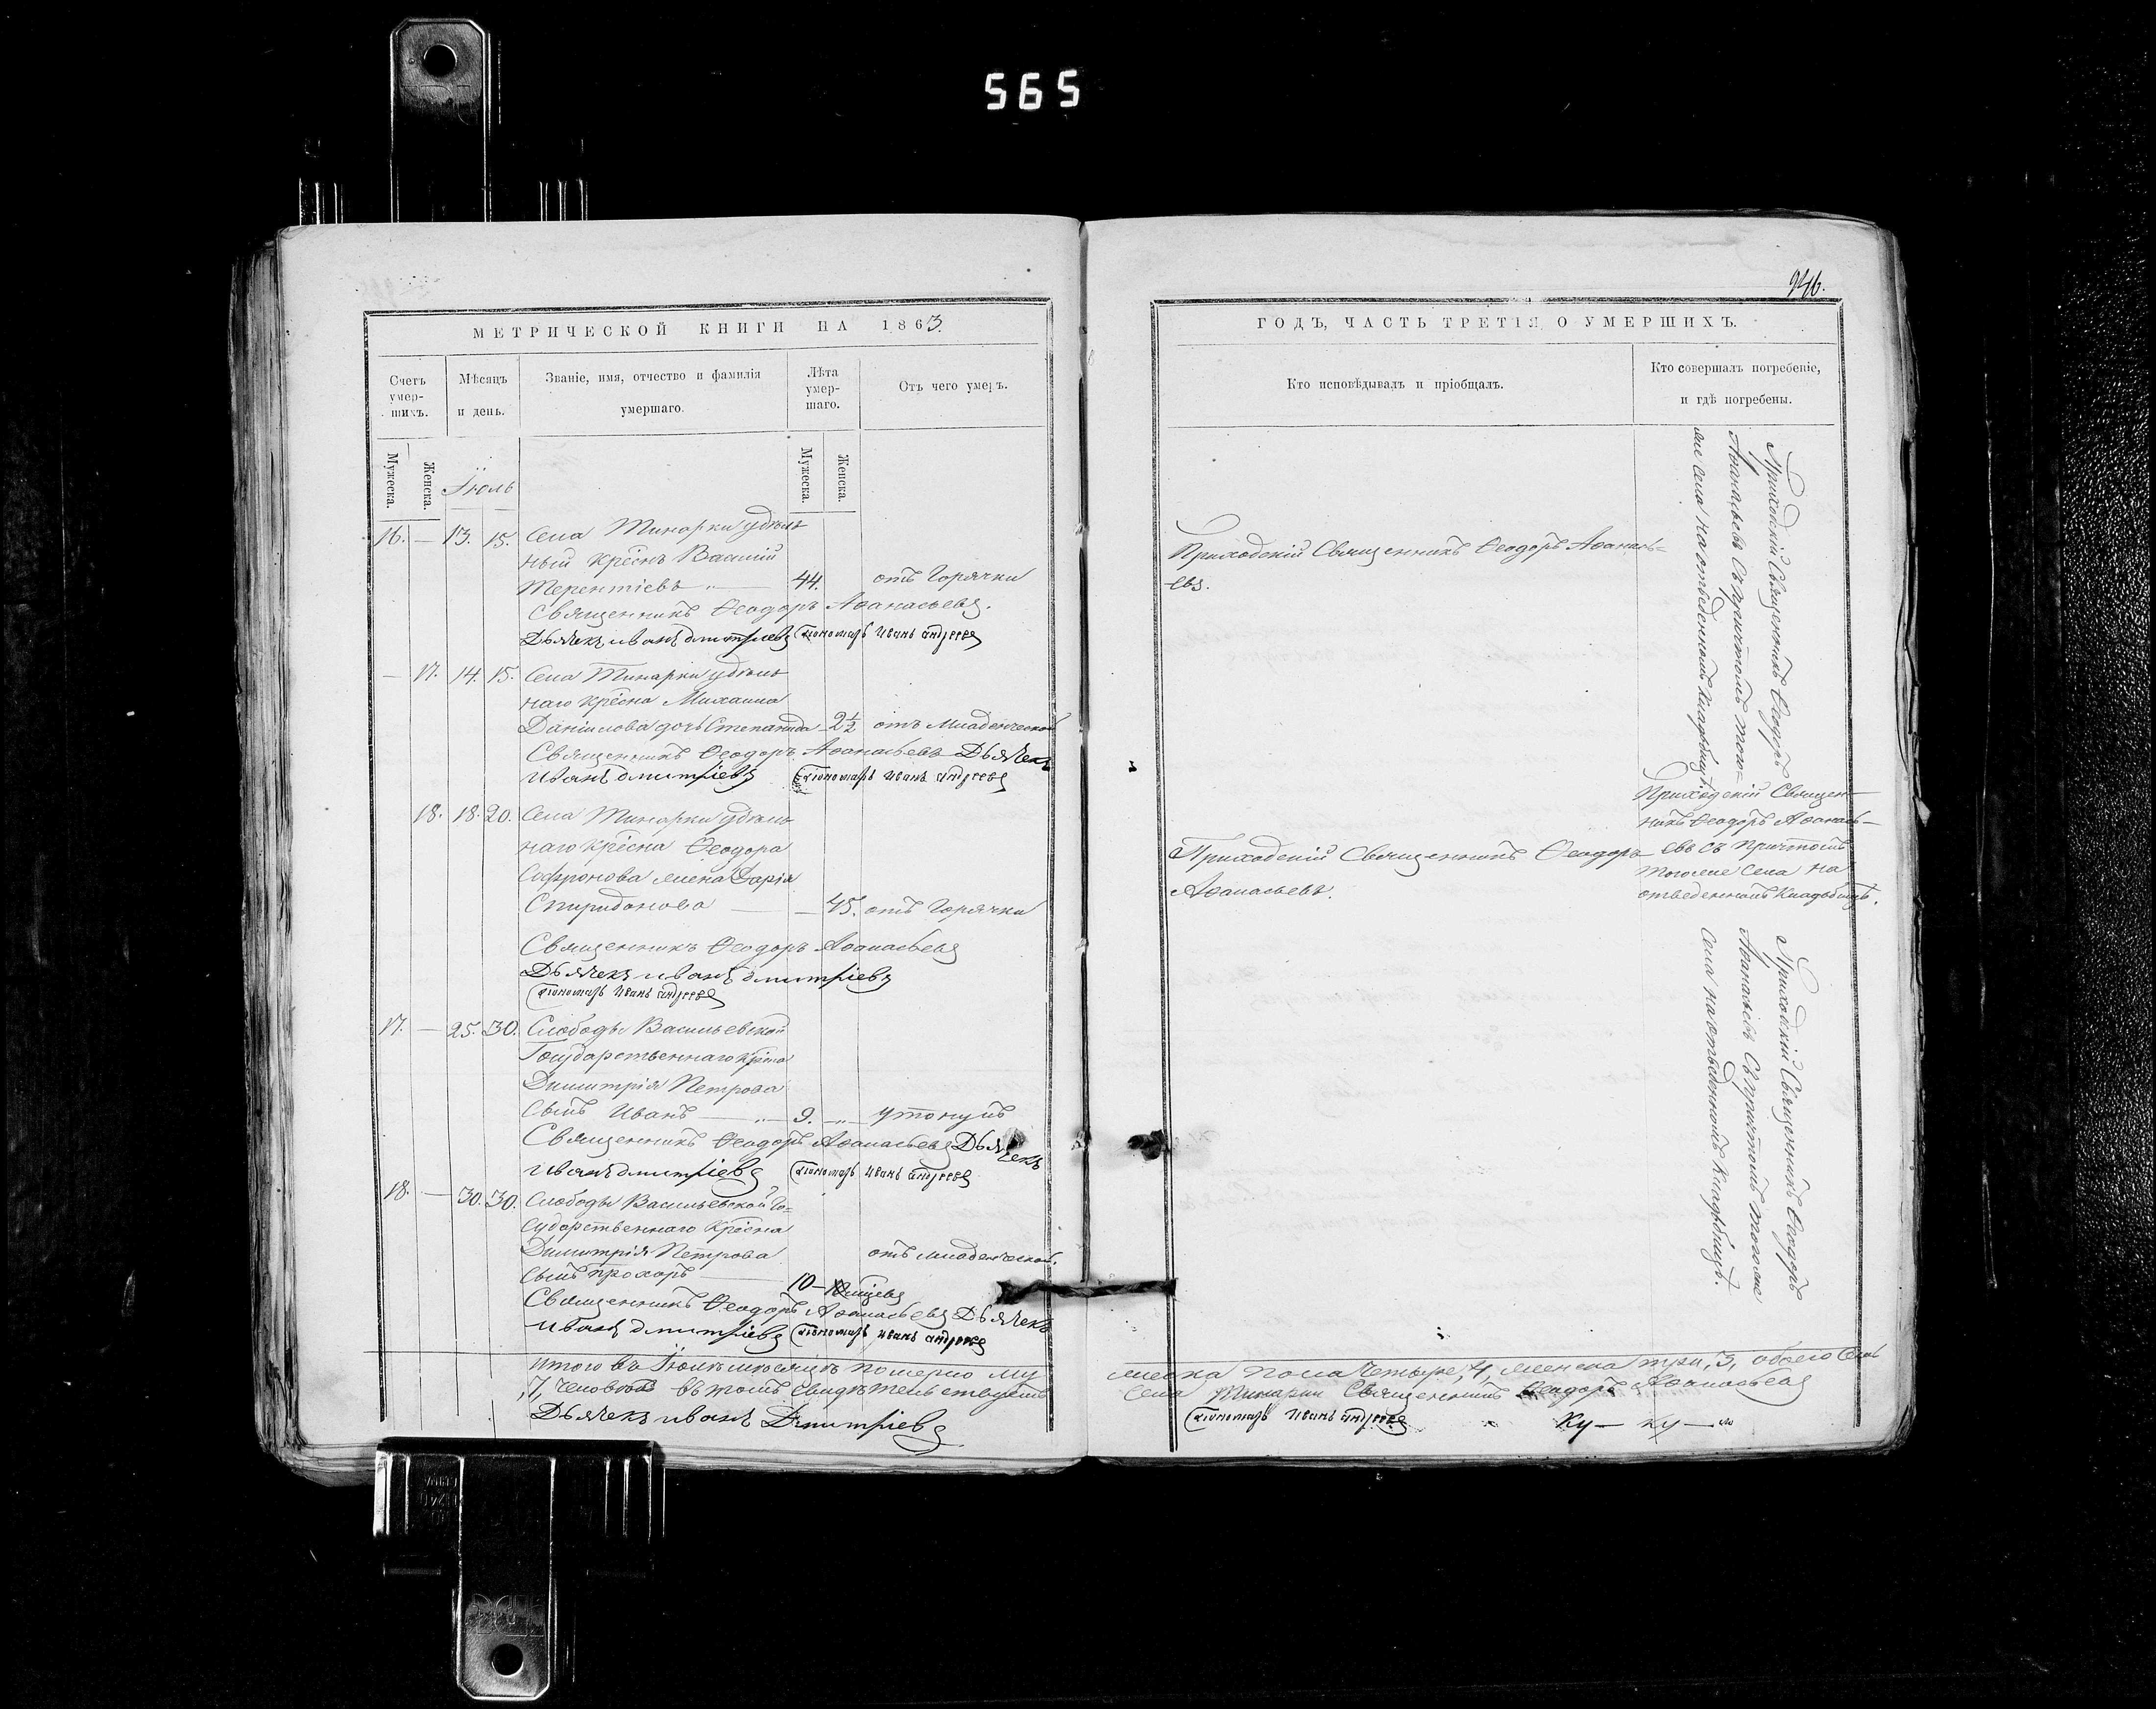 565
МЕТРИЧЕСКОЙ КНИГИ НА 1863.
Счетъ умер-шихъ.
Мѣсяцъ и день.
Званіе, имя, отчество и фамилія умершаго.
Лѣта умер-шаго.
Отъ чего умеръ.
Мужеска.
Женска.
Іюль
Мужеска.
Женска.
16. — 13. 15. Села Тинарки удѣль
ный крѣснъ Василій
Терентіевъ 44. отъ Горячки
Священникъ Ѳеодоръ Аѳанасьевъ.
Дьячекъ иванъ дмитріевъ Пономарь Иванъ андреевъ
— 17. 14. 15. Села Тинарки удѣль
наго крѣсна Михаила
Даніилова дочь Степанида 2½ отъ Младенческой
Священникъ Ѳеодоръ Аѳанасьевъ Дьячекъ
иванъ дмитріевъ Пономарь Иванъ андреевъ
18. 18. 20. Села Тинарки удѣль
наго крѣсна Ѳеодора
Софронова жена Дарія
Спиридонова — 45. отъ Горячки
Священникъ Ѳеодоръ Аѳанасьевъ
Дьячекъ иванъ дмитріевъ
Пономарь Иванъ андреевъ
17. — 25. 30. Слободы Васильевской
Государственнаго крѣсна
Димитрія Петрова
сынъ Иванъ 9. утонулъ
Священникъ Ѳеодоръ Аѳанасьевъ Дьячекъ
иванъ дмитріевъ Пономарь Иванъ андреевъ
18. — 30. 30. Слободы Васильевской Го-
сударственнаго крѣсна
Димитрія Петрова отъ младенческой.
сынъ Прохоръ 10-
Священникъ Ѳеодоръ Аѳанасьевъ Дьячекъ
иванъ дмитріевъ Пономарь Иванъ андреевъ
Итого въ Іюлѣ мѣсяцѣ померло му
,7, человѣкъ въ томъ свидѣтельствуемъ
Дьячекъ иванъ Дмитріевъ
246.
ГОДЪ, ЧАСТЬ ТРЕТІЯ, О УМЕРШИХЪ.
Кто исповѣдывалъ и пріобщалъ.
Кто совершалъ погребеніе, и гдѣ погребены.
Приходскій Священникъ Ѳеодоръ Аѳанась-
евъ.
Приходскій Священникъ Ѳеодоръ
Аѳанасьевъ съ причтомъ того-
же села на отведенномъ кладбищѣ.
Приходскій Священникъ Ѳеодоръ
Аѳанасьевъ.
Приходскій Священ-
никъ Ѳеодоръ Аѳанась-
евъ съ причтомъ
тогоже села на
отведенномъ кладбищѣ.
Приходскій Священникъ Ѳеодоръ
Аѳанасьевъ съ причтомъ тогоже
села на отведенномъ кладбищѣ.
жеска пола четыре, 4, женска три, 3, обоего семь
села Тинарки Священникъ Ѳеодоръ Аѳанасьевъ
Пономарь Иванъ андреевъ
Ку— ку—